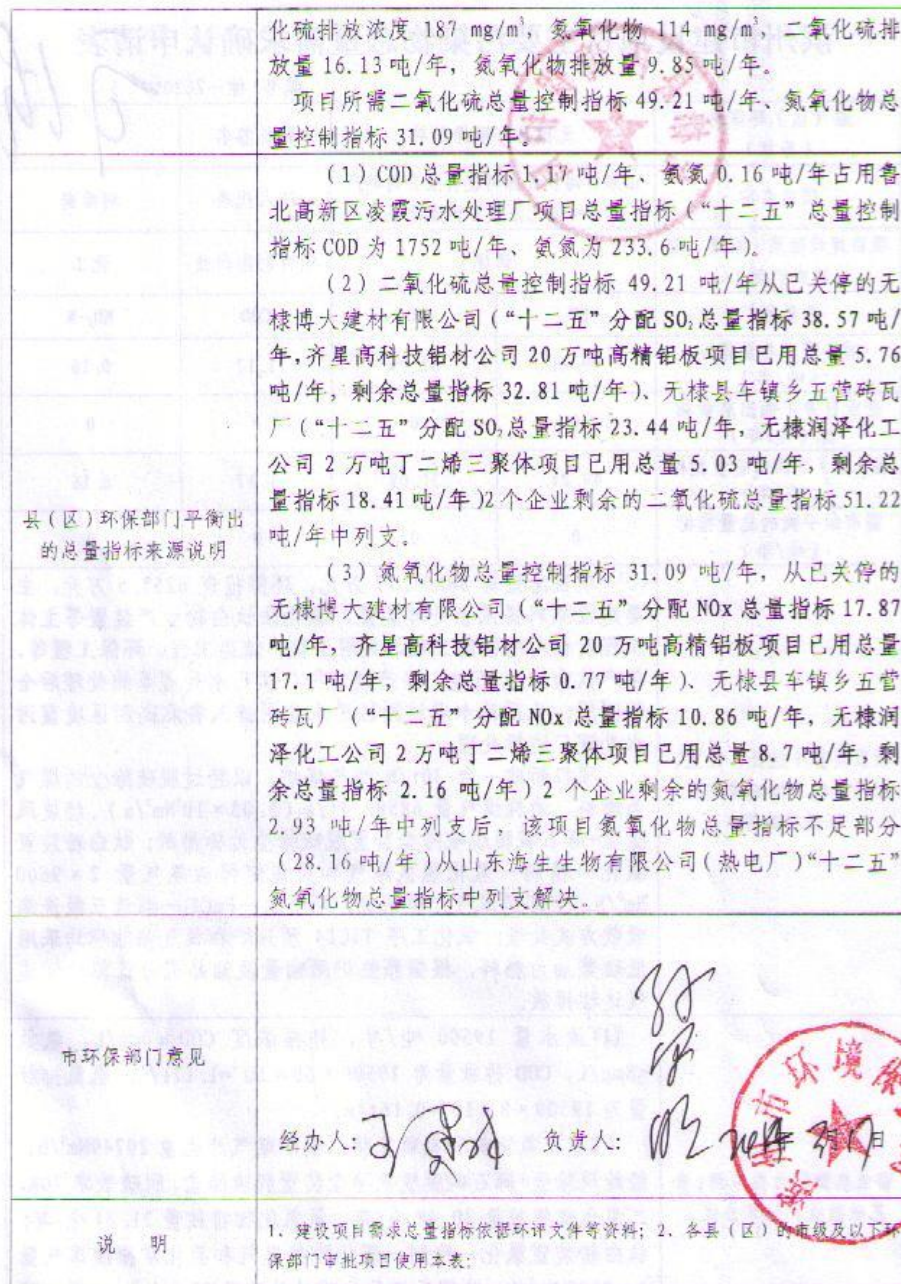 化硫排放浓度 187 mg/m³，氮氧化物 114 mg/m³，二氧化硫排
放量 16.13 吨/年，氮氧化物排放量 9.85 吨/年。
项目所需二氧化硫总量控制指标 49.21 吨/年、氮氧化物总
量控制指标 31.09 吨/年。
县（区）环保部门平衡出
的总量指标来源说明
（1）COD 总量指标 1.17 吨/年、氨氮 0.16 吨/年占用鲁
北高新区凌霞污水处理厂项目总量指标（“十二五”总量控制
指标 COD 为 1752 吨/年、氨氮为 233.6 吨/年）。
（2）二氧化硫总量控制指标 49.21 吨/年从已关停的无
棣博大建材有限公司（“十二五”分配 SO₂总量指标 38.57 吨/
年，齐星高科技铝材公司 20 万吨高精铝板项目已用总量 5.76
吨/年，剩余总量指标 32.81 吨/年）、无棣县车镇乡五营砖瓦
厂（“十二五”分配 SO₂总量指标 23.44 吨/年，无棣润泽化工
公司 2 万吨丁二烯三聚体项目已用总量 5.03 吨/年，剩余总
量指标 18.41 吨/年）2个企业剩余的二氧化硫总量指标 51.22
吨/年中列支。
（3）氮氧化物总量控制指标 31.09 吨/年，从已关停的
无棣博大建材有限公司（“十二五”分配 NOx 总量指标 17.87
吨/年，齐星高科技铝材公司 20 万吨高精铝板项目已用总量
17.1 吨/年，剩余总量指标 0.77 吨/年）、无棣县车镇乡五营
砖瓦厂（“十二五”分配 NOx 总量指标 10.86 吨/年，无棣润
泽化工公司 2 万吨丁二烯三聚体项目已用总量 8.7 吨/年，剩
余总量指标 2.16 吨/年）2 个企业剩余的氮氧化物总量指标
2.93 吨/年中列支后，该项目氮氧化物总量指标不足部分
（28.16 吨/年）从山东海生生物有限公司（热电厂）“十二五”
氮氧化物总量指标中列支解决。
市环保部门意见
经办人： 负责人： 年 月 日
市环境
说 明
1、建设项目需求总量指标依据环评文件等资料；2、各县（区）的市级及以下环
保部门审批项目使用本表；